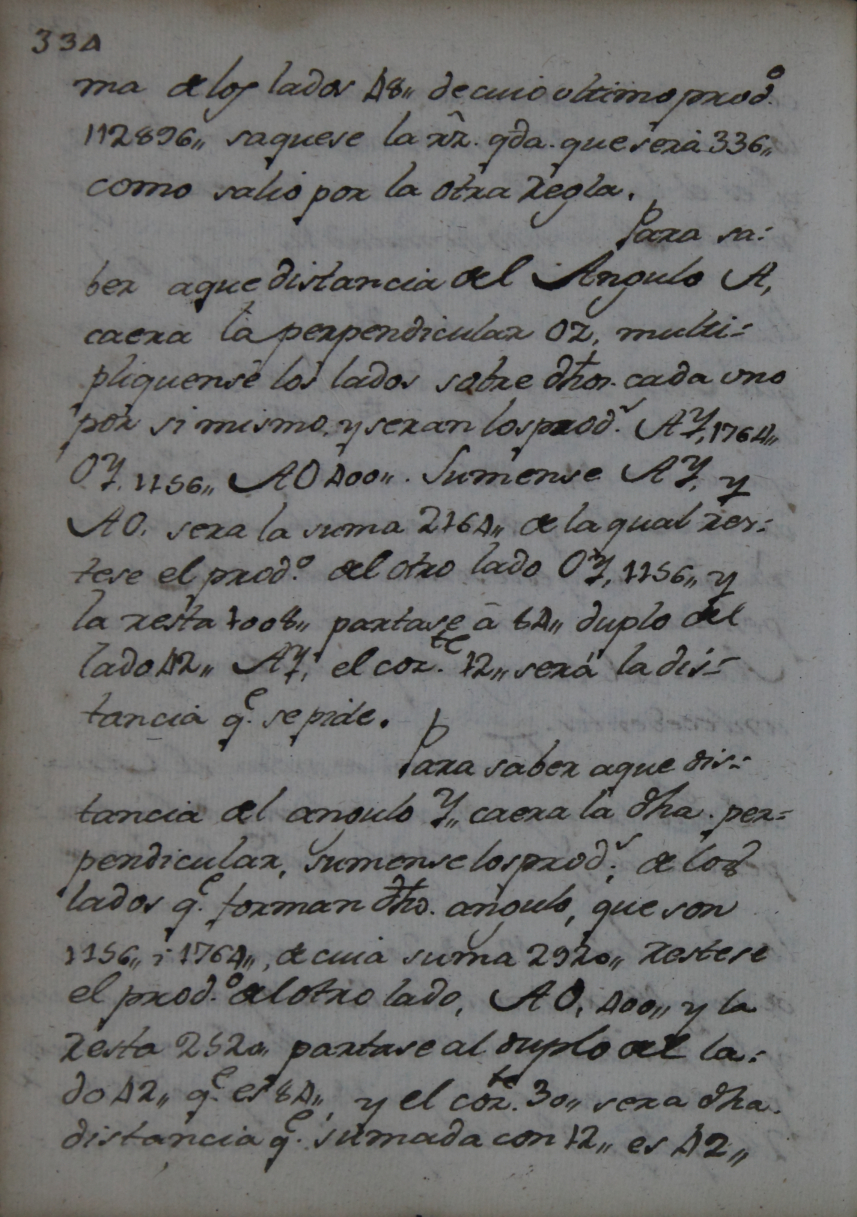 334
ma de los lados 48,, de cuio ultimo prod.º
112896,, saquese la rz. qda. que será 336,,
como salió por la otra Regla.
Para sa=
ber aque distancia del Angulo A,
caera la perpendicular OZ, multi=
pliquense los lados sobre dhos. cada uno
por si mismo, y seran los prod.s AY, 1764,,
OY, 1156,, AO 400,,. Sumense AY, y
AO, sera la suma 2164,, de la qual res=
tese el prod.º del otro lado OY, 1156,, y
la resta 1008,, partase â 84,, duplo del
lado 42,, AY, el cor.te 12,, será la dis=
tancia q.e se pide.
Para saber aque dis=
tancia del angulo Y,, caera la dha. per=
pendicular, sumense los prod.s de los
lados q.e forman dho. angulo, que son
1156,, i 1764,,, de cuia suma 2920,, restese
el prod.º del otro lado, AO, 400,, y la
resta 2520,, partase al duplo del la=
do 42,, q.e es 84,,, y el cor.te 30,, sera dha.
distancia q.e sumada con 12,, es 42,,